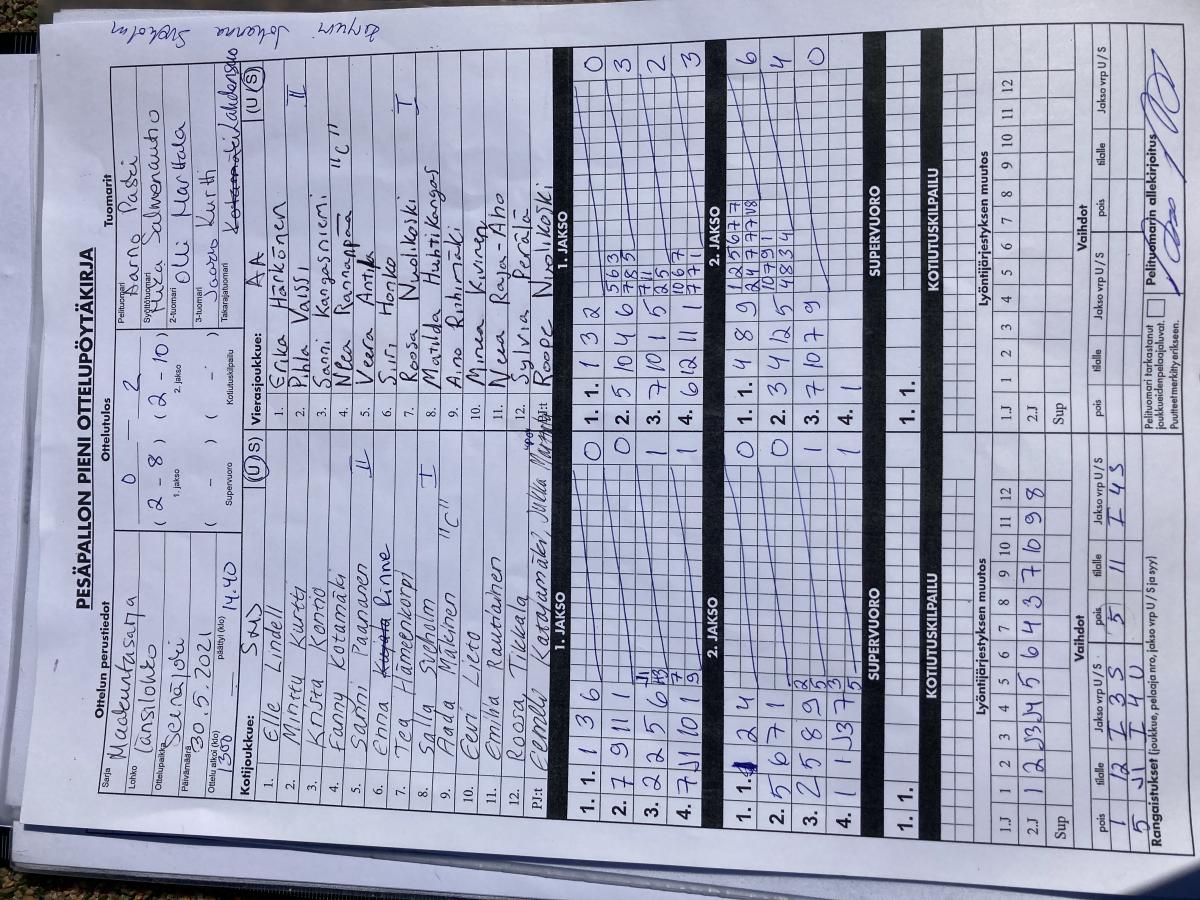 Kirjuri Johanna Sveholm
PESÄPALLON PIENI OTTELUPÖYTÄKIRJA
Ottelun perustiedot
Sarja Maakuntasarja
Lohko Länsilohko
Ottelupaikka Seinäjoki
Päivämäärä 30.5.2021
Ottelu alkoi (klo) 1300 päättyi (klo) 14.40
Ottelutulos
0 – 2
(2 – 8) (2 – 10)
1. jakso 2. jakso
( – ) ( – )
Supervuoro Kotiutuskilpailu
Tuomarit
Pelituomari Aarno Paski
Syöttötuomari Mika Salmenautio
2-tuomari Olli Marttala
3-tuomari Kurtti
Takarajatuomari
Kotijoukkue: SMJ (U) S)
1. Elle Lindell
2. Minttu Kurtti
3. Krista Kontio
4. Fanny Kotamäki
5. Sanni Paananen II
6. Enna Rinne
7. Tea Hämeenkorpi
8. Salla Sveholm I
9. Aada Mäkinen "C"
10. Eeri Lieto
11. Emilia Rautiainen
12. Roosa Tikkala
PJ:t Eemeli Katajamäki, Jukka
Vierasjoukkue: AA (U (S)
1. Erika Häkkönen
2. Pihla Vaissi II
3. Sanni Kangasniemi
4. Nea Rannanpää "C"
5. Veera Anttila
6. Siri Honko
7. Roosa Nuolikoski
8. Matilda Huhtikangas I
9. Aino Riihimäki
10. Minea Kivinen
11. Neea Raja-Aho
12. Sylvia Perälä
PJ:t Roope Nuolikoski
1. JAKSO 1. JAKSO
1. 1. 1 3 6 0
2. 7 9 11 1 0
3. 2 2 5 6 1
4. 7 J1 10 1 7 9 1
1. 1. 1 3 2 0
2. 5 10 4 6 5 6 3 7 8 5 3
3. 7 10 1 5 7 11 2 5 2
4. 6 12 11 1 10 6 7 7 7 1 3
2. JAKSO 2. JAKSO
1. 1. 2 4 0
2. 5 6 7 1 0
3. 2 5 8 9 2 5 1
4. 1 1 J3 7 3 5 1
1. 1. 4 8 9 1 2 5 6 7 7 6
2. 3 4 12 5 10 7 9 1 4 8 3 4 4
3. 7 10 7 9 0
4. 1
SUPERVUORO SUPERVUORO
1. 1. 1. 1.
KOTIUTUSKILPAILU KOTIUTUSKILPAILU
Lyöntijärjestyksen muutos Lyöntijärjestyksen muutos
1.J 1 2 3 4 5 6 7 8 9 10 11 12
2.J 1 2 J3 J4 5 6 4 3 7 10 9 8
Sup
1.J 1 2 3 4 5 6 7 8 9 10 11 12
2.J
Sup
Vaihdot Vaihdot
pois tilalle Jakso vrp U / S pois tilalle Jakso vrp U / S
1 12 I 3 S 5 11 I 4 S
5 J1 I 4 U
pois tilalle Jakso vrp U / S pois tilalle Jakso vrp U / S
Rangaistukset (joukkue, pelaaja nro, jakso vrp U / S ja syy)
Pelituomari tarkastanut
joukkueiden pelaajaluvat.
Puutteet merkitty erikseen.
Pelituomarin allekirjoitus